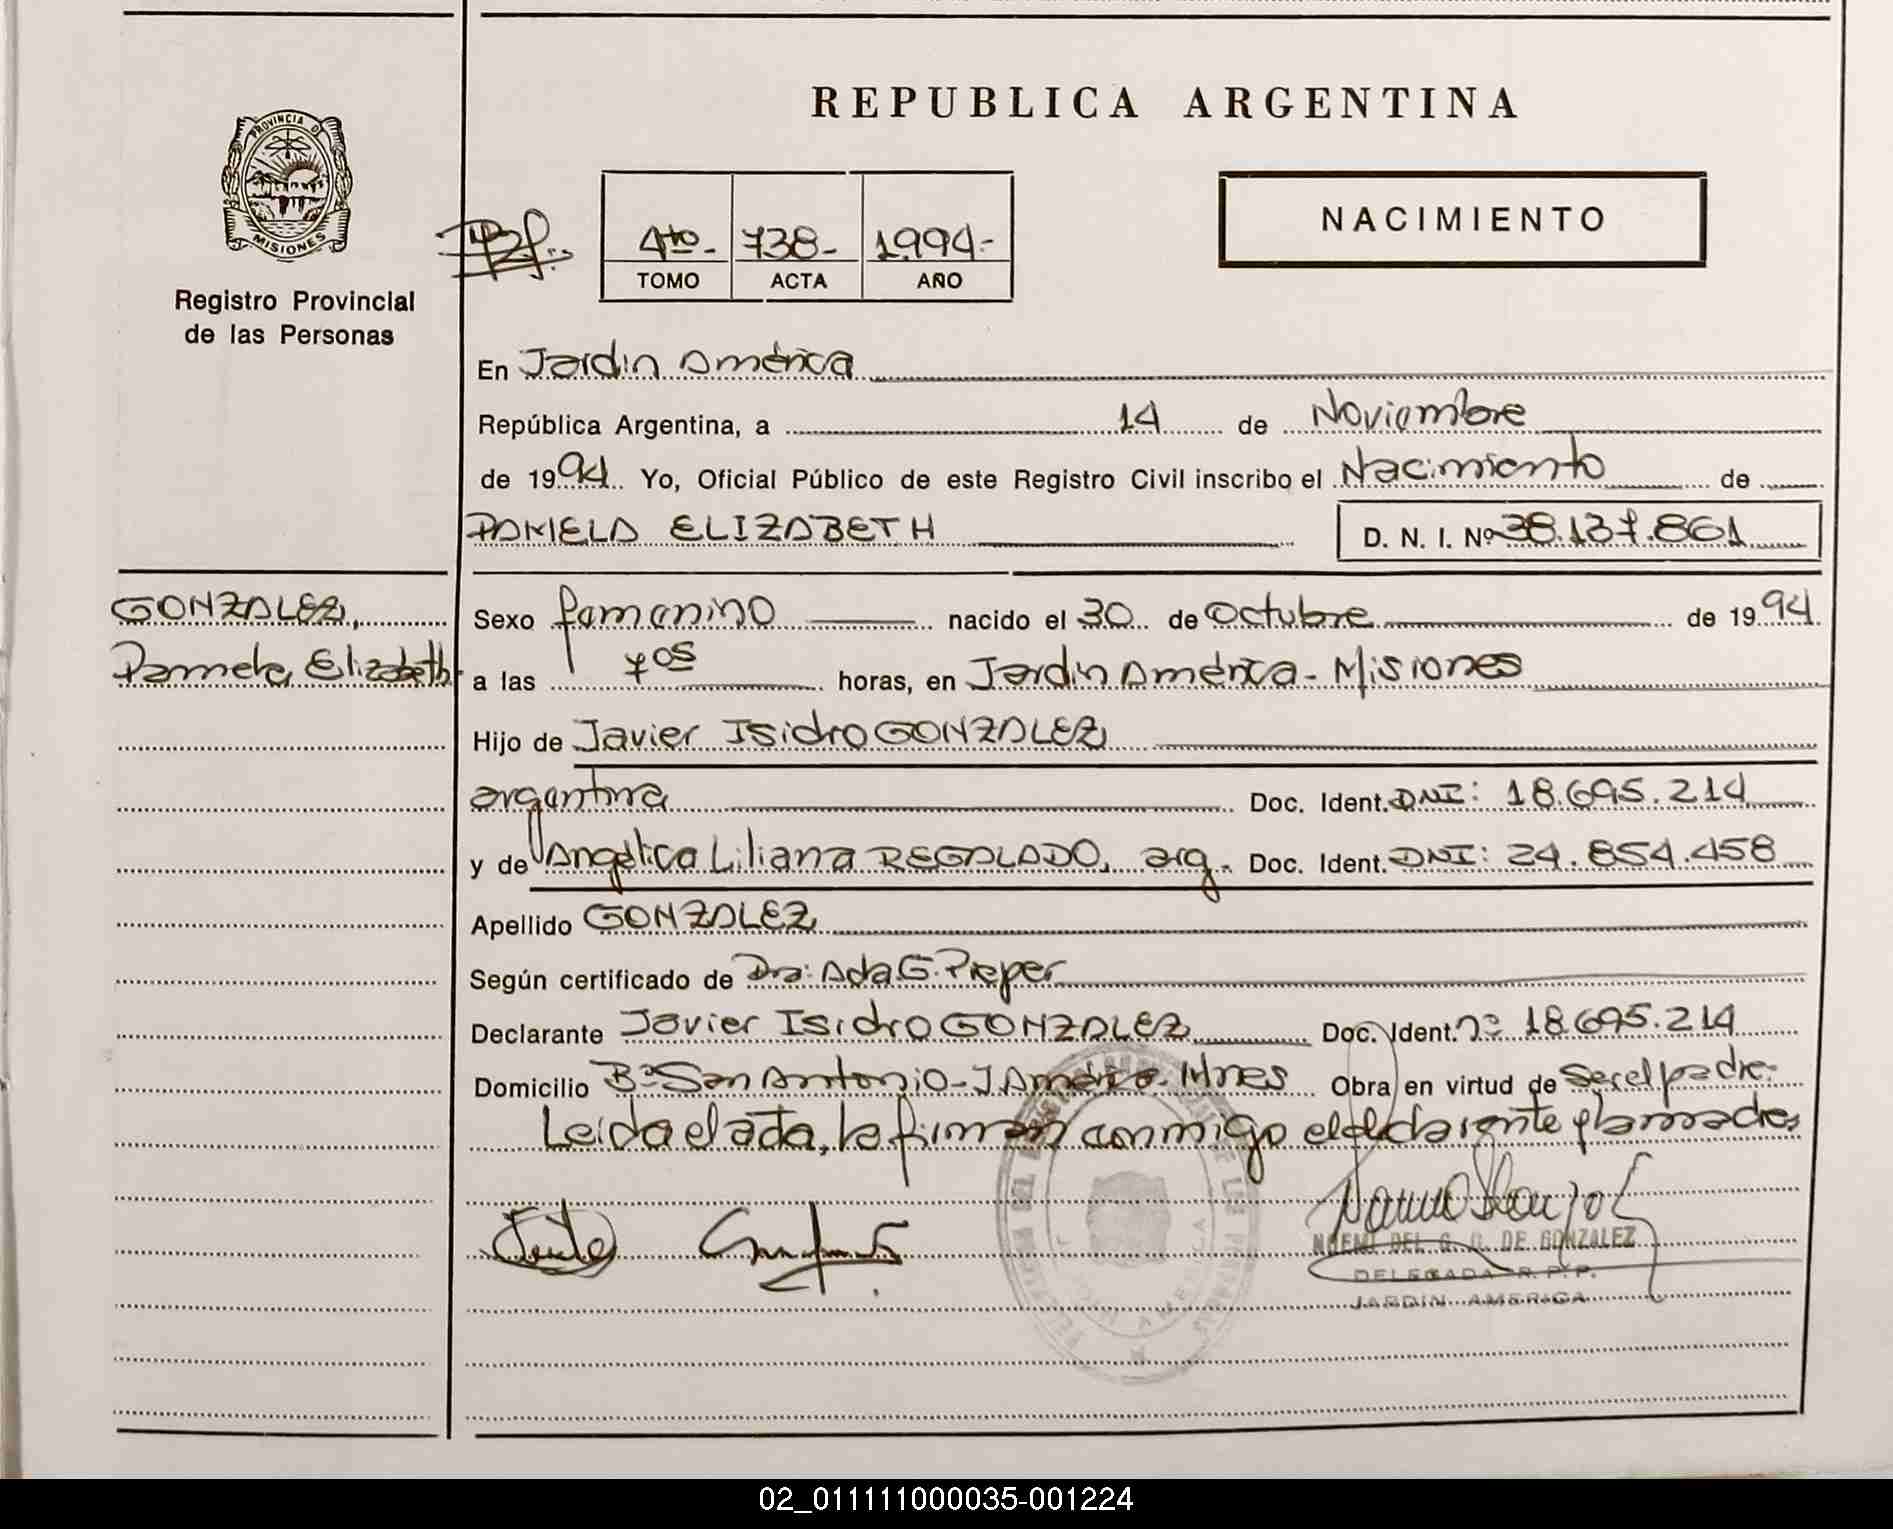 REPUBLICA ARGENTINA
PROVINCIA D
MISIONES
Registro Provincial
de las Personas
4to- 738- 1994-
TOMO ACTA AÑO
NACIMIENTO
En Jardín América
República Argentina, a 14 de Noviembre
de 1994 Yo, Oficial Público de este Registro Civil inscribo el Nacimiento de
PAMELA ELIZABETH D. N. I. Nº 38.137.861
GONZALEZ,
Pamela Elizabeth
Sexo femenino nacido el 30 de Octubre de 1994
a las 7 os horas, en Jardín América - Misiones
Hijo de Javier Isidro GONZALEZ
argentina Doc. Ident. DNI: 18.695.214
y de Angélica Liliana REGALADO, arg. Doc. Ident. DNI: 24.854.458
Apellido GONZALEZ
Según certificado de Dra: Ada G. Pieper
Declarante Javier Isidro GONZALEZ Doc. Ident. nº 18.695.214
Domicilio Bº San Antonio - J. América - Mnes Obra en virtud de ser el padre.
Leída el acta, la firman conmigo el declarante y la madre
NOEMI DEL G. DE GONZALEZ
DELEGADA R. P. P.
JARDIN AMERICA
02_011111000035-001224